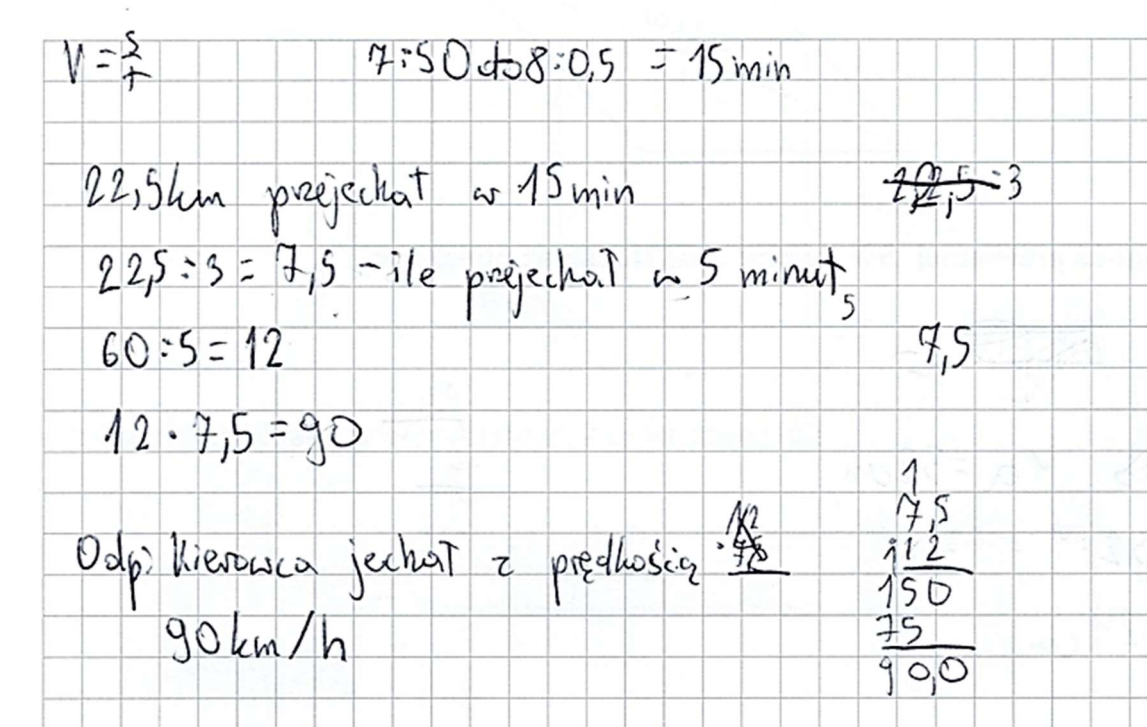 V = s/t 7:50 do 8:0,5 = 15 min
22,5km przejechał w 15 min 22,5:3
22,5:3 = 7,5 - ile przejechał w 5 minut
60:5 = 12 7,5
12 · 7,5 = 90
1
7,5
Odp: Kierowca jechał z prędkością
· 12
150
90km/h
75
90,0